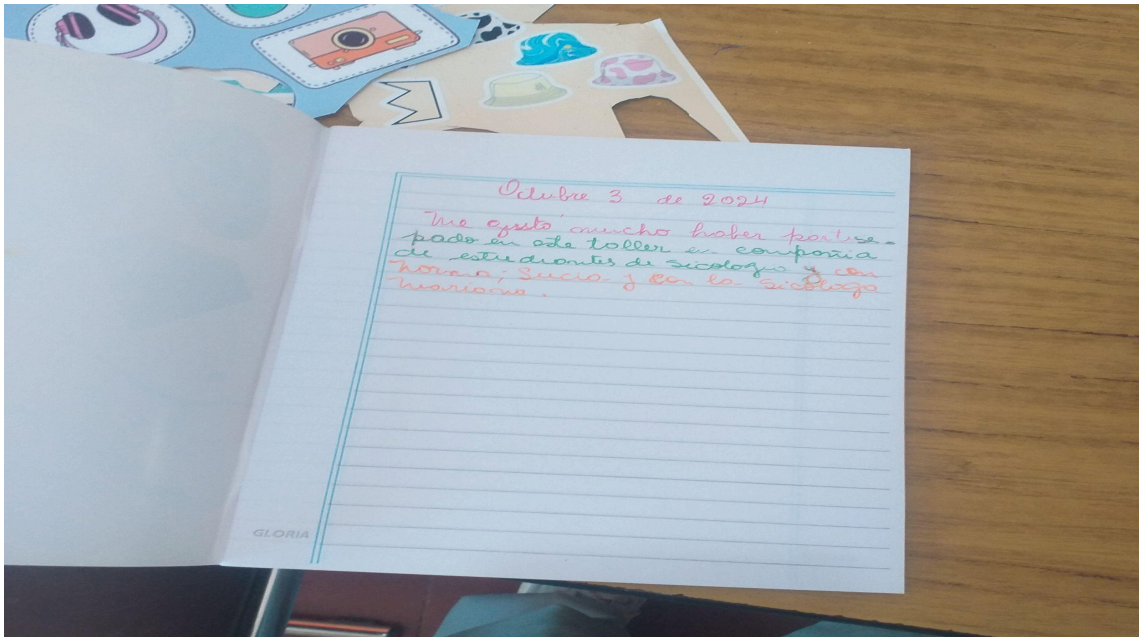 Octubre 3 de 2024
Me gustó mucho haber partise-
pado en este taller en compañia
de estudiantes de sicologia y con
norma; Lucia y con la sicologa
Mariana.
GLORIA